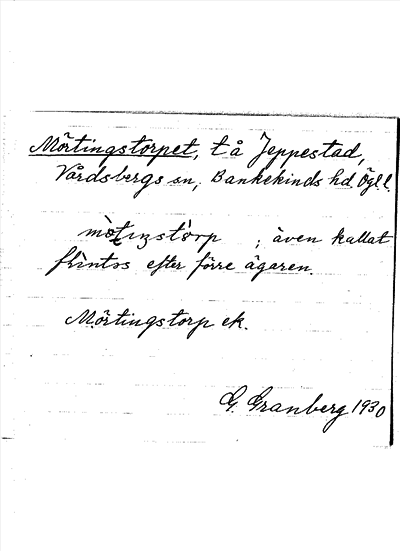 Mörtingstorpet, t å Jeppestad,
Vårdsbergs sn, Bankekinds hd. Ögl.
; även kallat
efter förre ägaren.
Mörtingstorp ek.
G. Granberg 1930